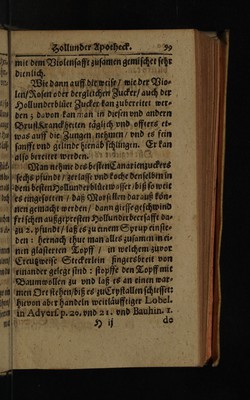 Hollunder Apotheck. 59
mit dem Violensafft zusamen gemischet sehr
dienlich.
Wie dann auff die weise / wie der Vio-
len / Rosen oder dergleichen Zucker / auch der
Hollunderblüet Zucker kan zubereitet wer-
den; davon kan man in diesen und andern
Brust Kranckheiten täglich und offters et-
was auff die Zungen nehmen / und es fein
sanfft und gelinde hinab schlingen. Er kan
also bereitet werden.
Man nehme des besten Canarienzuckers
sechs pfunde / zerlasse und koche denselben in
dem besten Hollunderblüetwasser / biß so weit
es eingesotten / daß Morsellen darauß kön-
nen gemacht werden / dann giesse geschwind
frischen außgepresten Hollunderbeersafft da-
zu 2. pfundt / laß es zu einem Syrup einsie-
den: hernach thut man alles zusamen in ei-
nen glasierten Topff / in welchem zuvor
Creutzweise Steckerlein fingersbreit von
einander gelegt sind: stopffe den Topff mit
Baumwollen zu und laß es an einen war-
men Ort stehen / biß es zu Crystallen schiesset:
hievon aber handeln weitläufftiger Lobel.
in Adverſ. p. 20. und 21. und Bauhin. 1.
H ij do